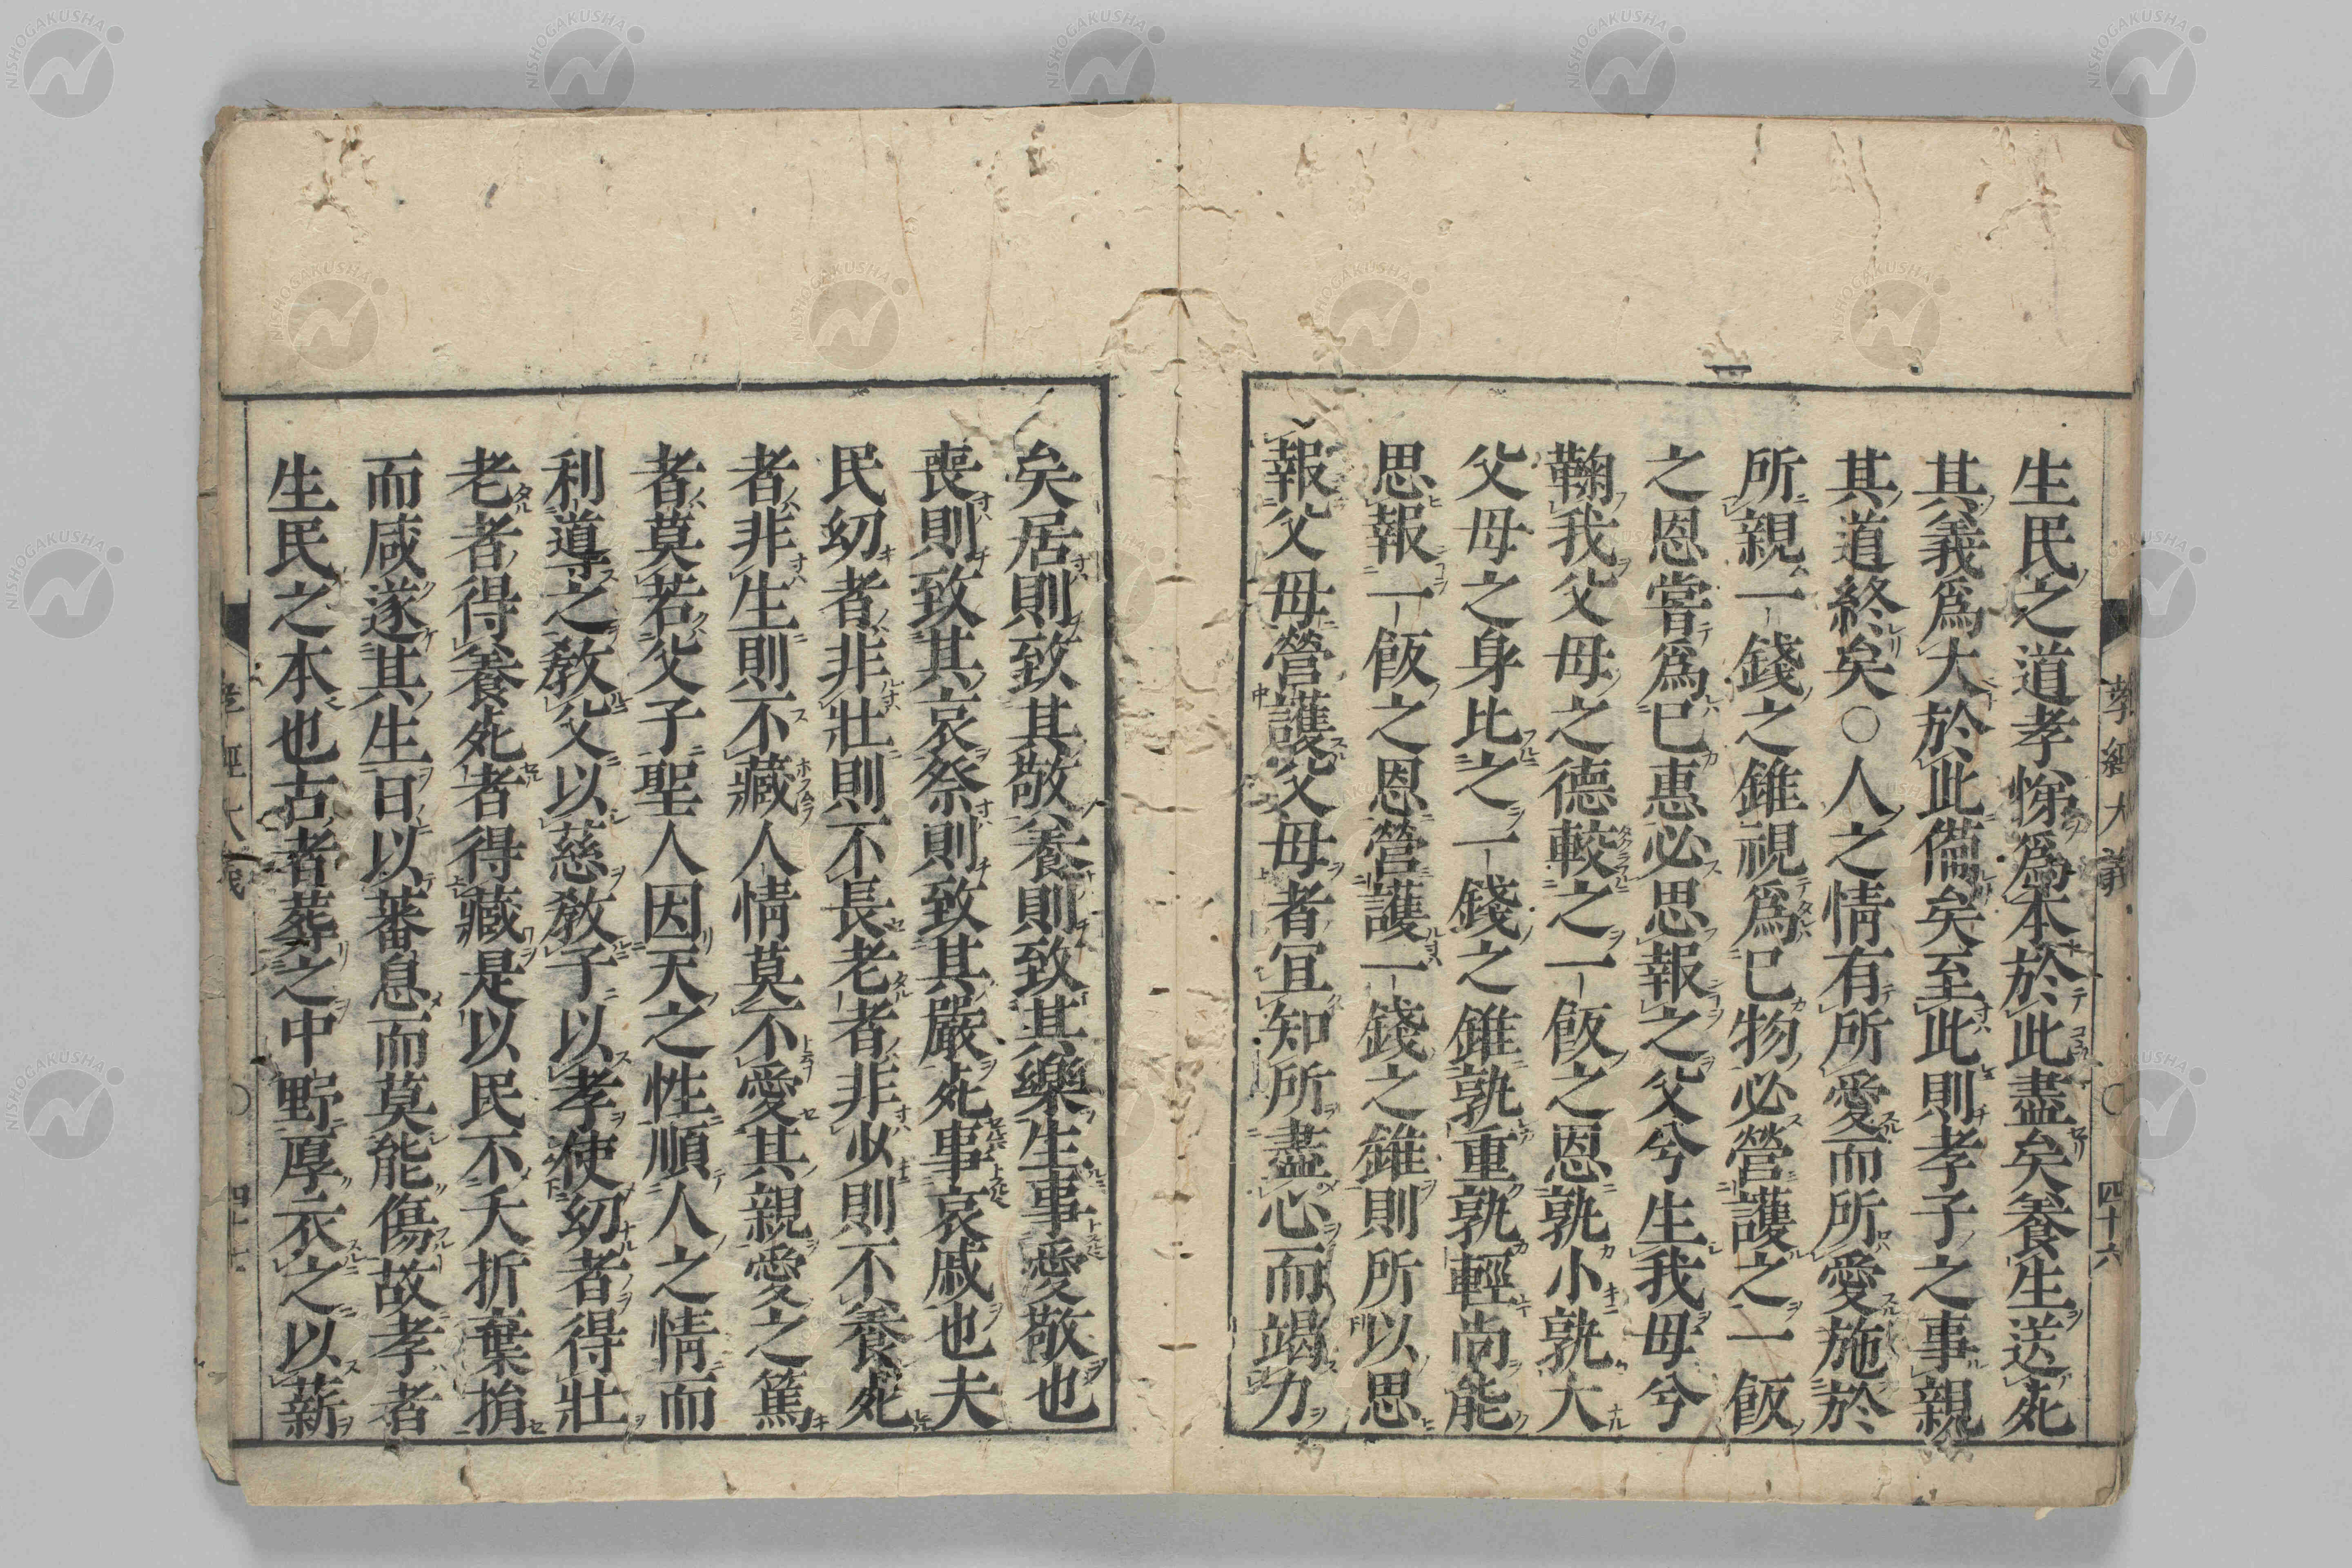 生民之道孝悌爲本於此盡矣養生送死
其義爲大於此僃矣至此則孝子之事親
其道終矣○人之情有所愛而所愛施於
所親一錢之錐視爲已物必營護之一飯
之恩嘗爲已惠必思報之父兮生我母兮
鞠我父母之德較之一飯之恩孰小孰大
父母之身比之一錢之錐孰重孰輕尚能
思報一飯之恩營護一錢之錐則所以思
報父母營護父母者宜知所盡心而竭力
矣居則致其敬養則致其樂生事愛敬也
喪則致其哀祭則致其嚴死事哀戚也夫
民幼者非壯則不長老者非少則不養死
者非生則不藏人情莫不愛其親愛之篤
者莫若父子聖人因天之性順人之情而
利導之敎父以慈敎子以孝使幼者得壯
老者得養死者得藏是以民不夭折棄捐
而咸遂其生日以蕃息而莫能傷故孝者
生民之本也古者葬之中野厚衣之以薪
孝經大義
四十六